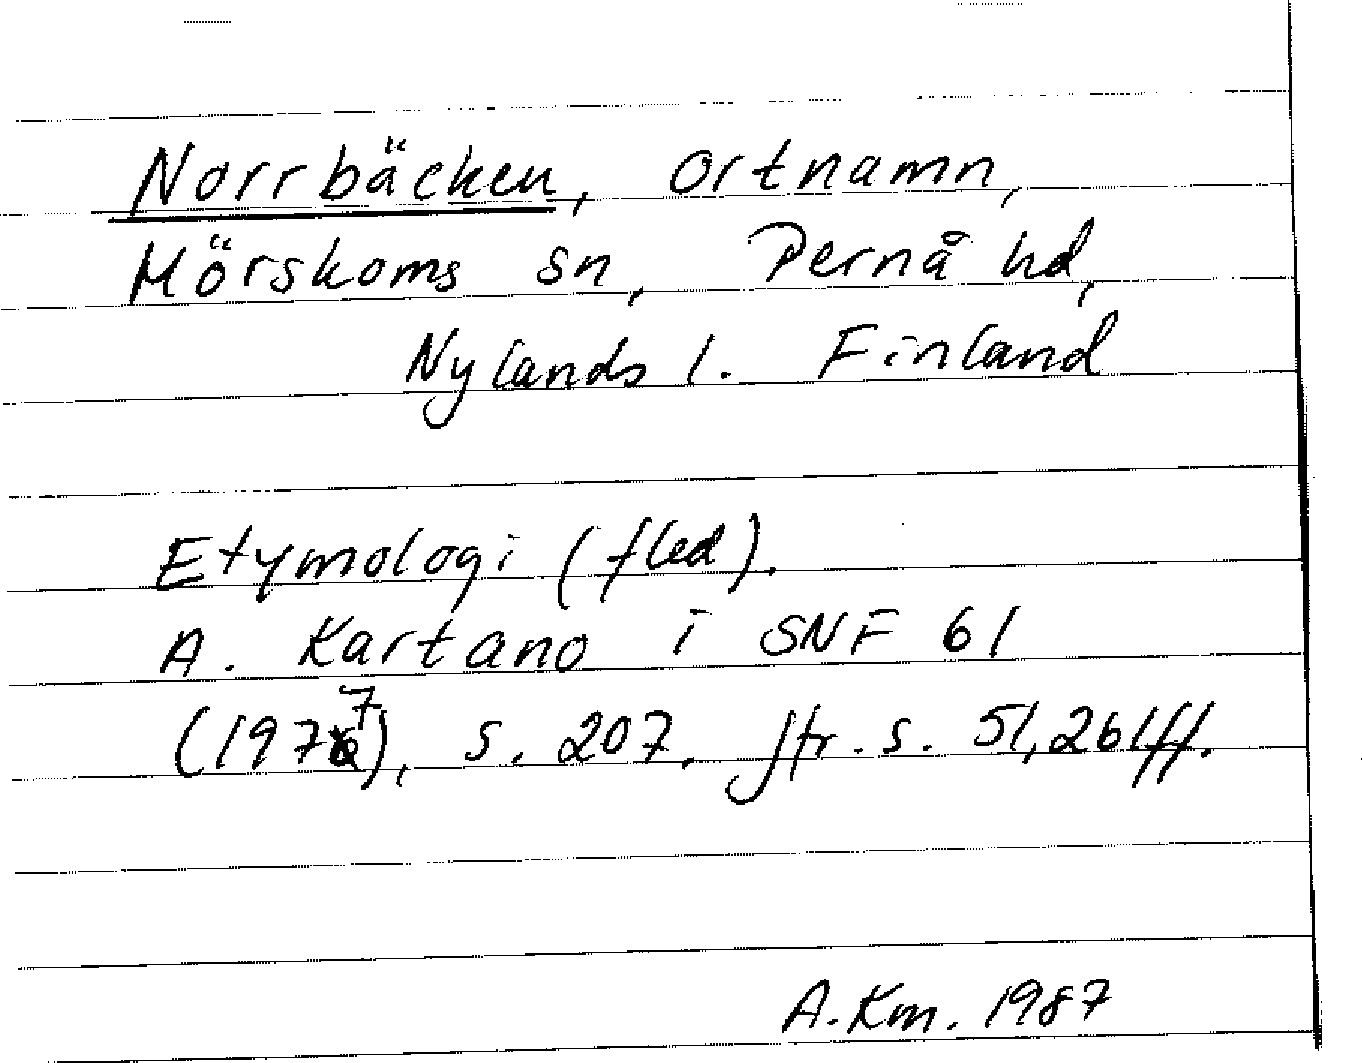 Norrbäcken, ortnamn,
Mörskoms sn, Pernå hd,
Nylands l. Finland
Etymologi (fled).
A. Kartano i SNF 61
(1977), s. 207. Jfr. s. 51, 261ff.
A. Km. 1987